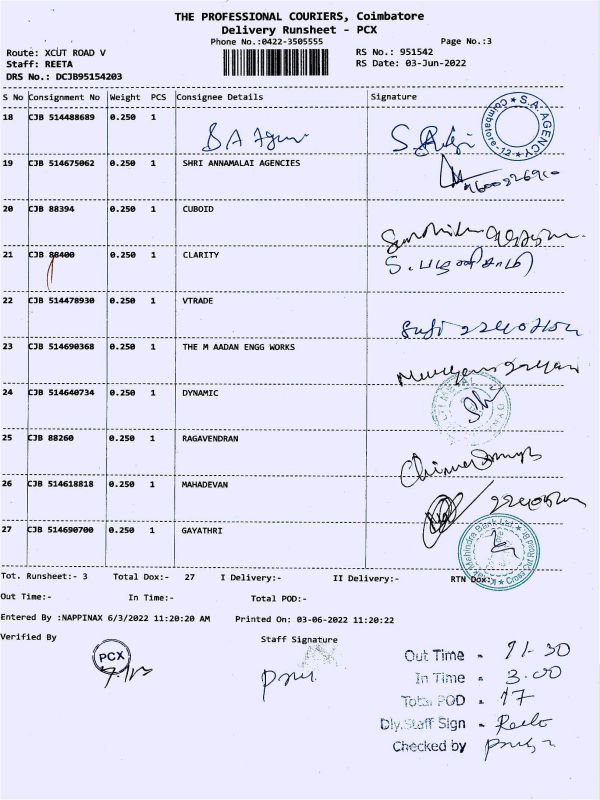 THE PROFESSIONAL COURIERS, Coimbatore
Delivery Runsheet - PCX
Phone No.:0422-3505555
Page No.:3
Route: XCUT ROAD V
RS No.: 951542
Staff: REETA
RS Date: 03-Jun-2022
DRS No.: DCJB95154203
S No Consignment No Weight PCS Consignee Details Signature
18 CJB 514488689 0.250 1
S.A. AGENCY
Coimbatore-12
19 CJB 514675062 0.250 1 SHRI ANNAMALAI AGENCIES
20 CJB 88394 0.250 1 CUBOID
21 CJB 88400 0.250 1 CLARITY
22 CJB 514478930 0.250 1 VTRADE
23 CJB 514690368 0.250 1 THE M AADAN ENGG WORKS
24 CJB 514640734 0.250 1 DYNAMIC
25 CJB 88260 0.250 1 RAGAVENDRAN
26 CJB 514618818 0.250 1 MAHADEVAN
27 CJB 514690700 0.250 1 GAYATHRI
Tot. Runsheet:- 3 Total Dox:- 27 I Delivery:- II Delivery:- RTN Dox:-
Out Time:- In Time:- Total POD:-
Entered By :NAPPINAX 6/3/2022 11:20:20 AM Printed On: 03-06-2022 11:20:22
Verified By Staff Signature
PCX
Out Time - 11-30
In Time - 3.00
Total POD - 17
Dly.Staff Sign -
Checked by